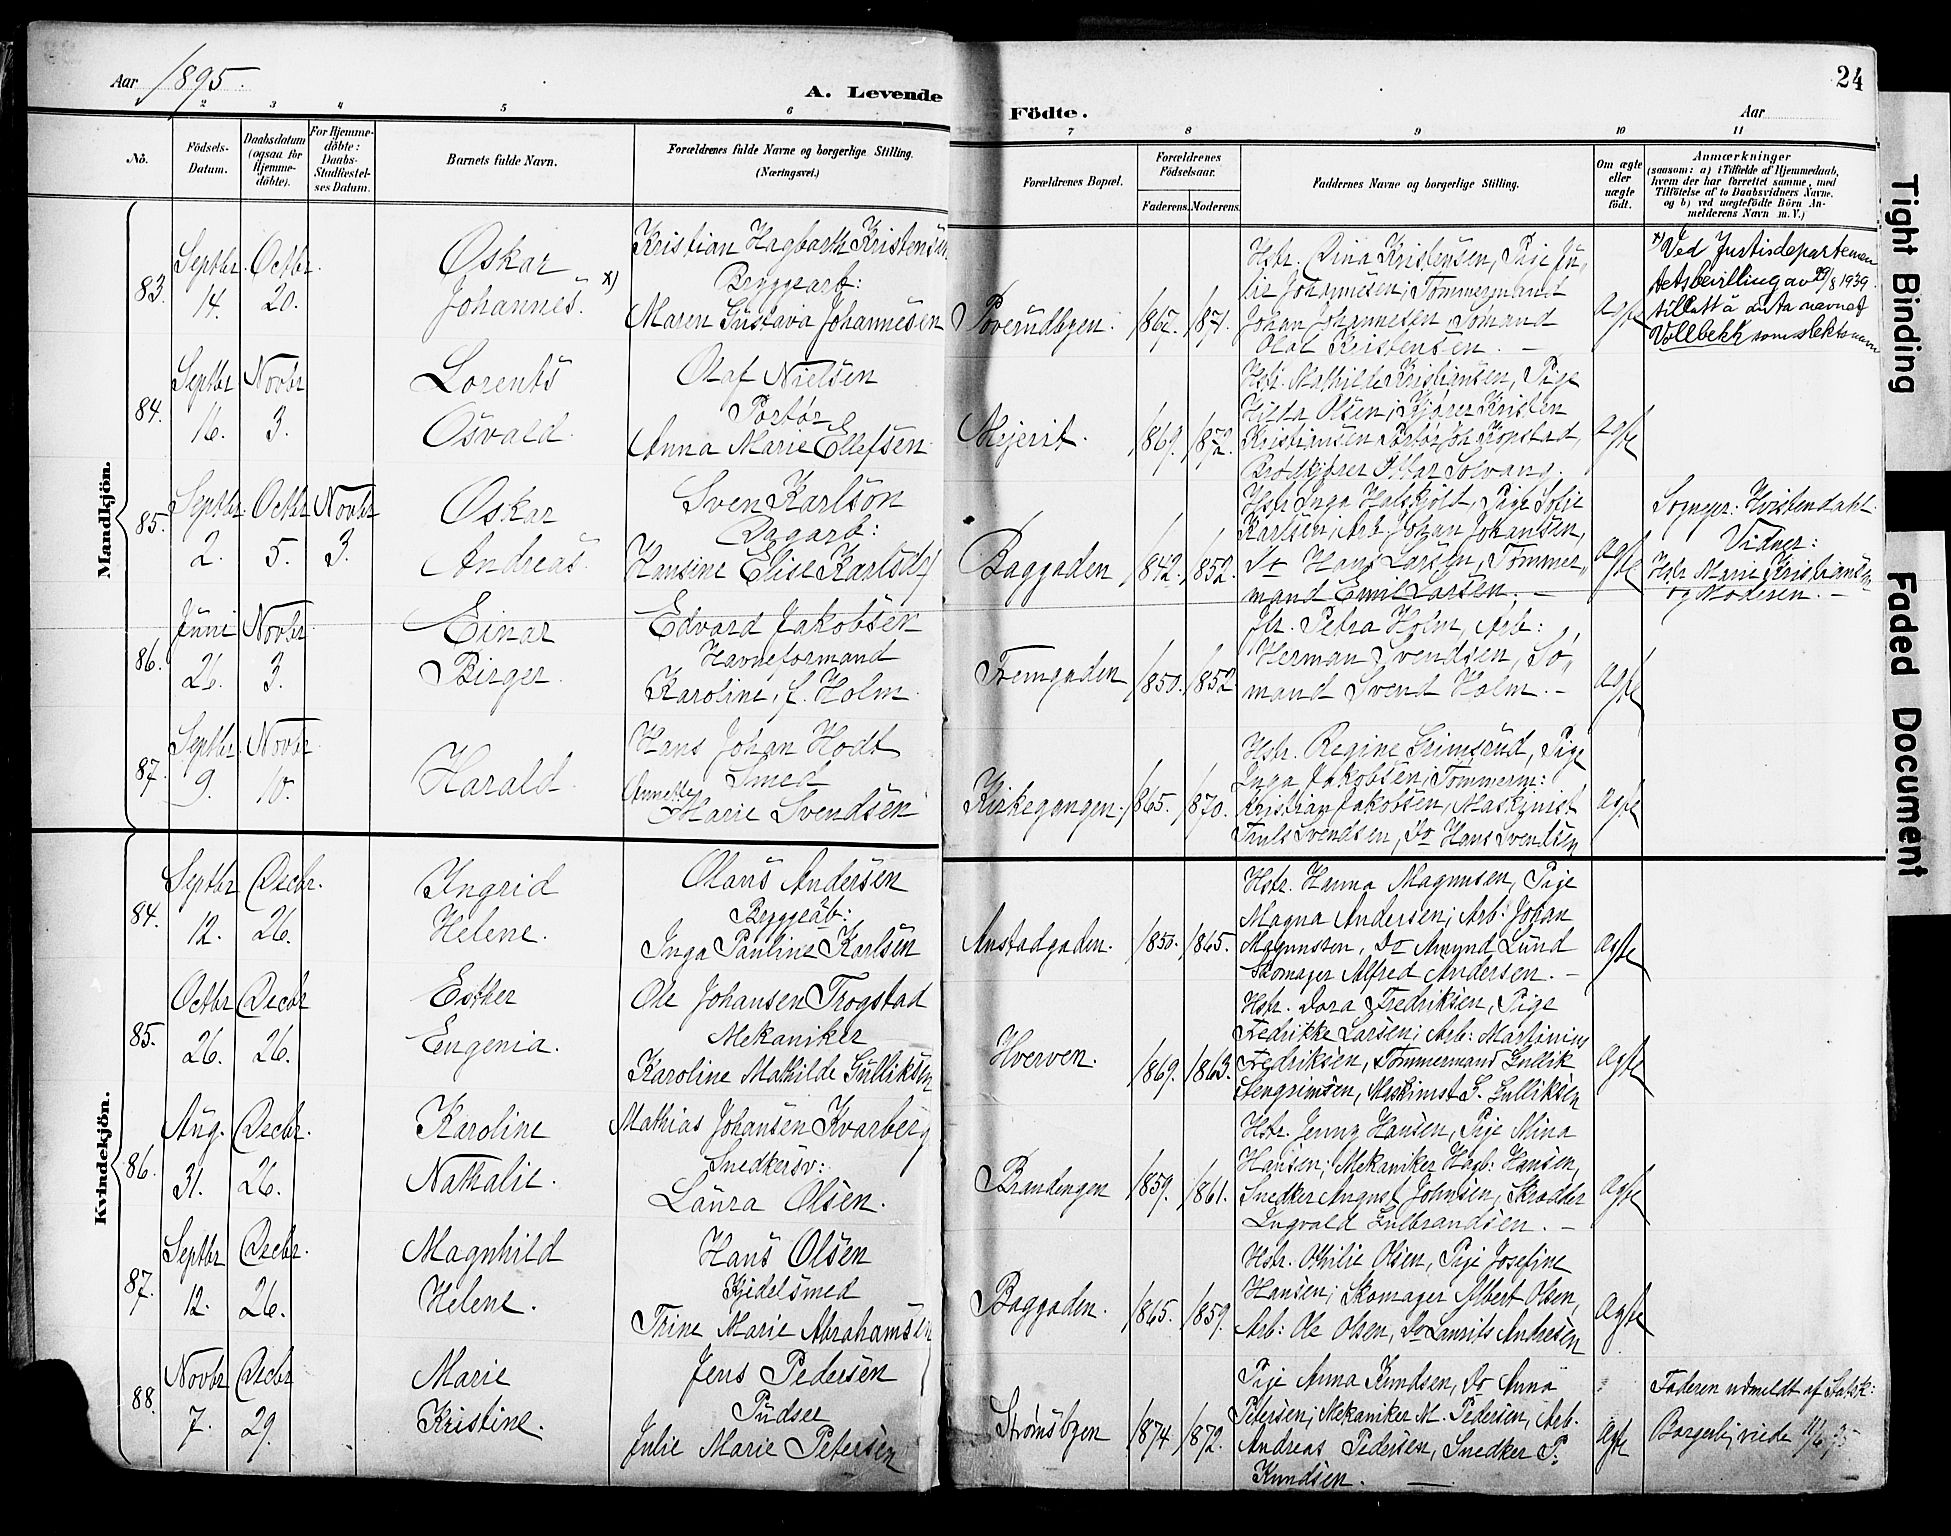 Aar 1895.
A. Levende
Födte.
Aar
24
2 3 4 5 6 7 8 9 10 11
No.
Födsels-Datum.
Daabsdatum (ogsaa for Hjemme-döbte).
For Hjemme-döbte: Daabs-Stadfæstel-ses Datum.
Barnets fulde Navn.
Forældrenes fulde Navne og borgerlige Stilling. (Næringsvei.)
Forældrenes Bopæl.
Forældrenes Födselsaar.
Faderens. Moderens.
Faddernes Navne og borgerlige Stilling.
Om ægte eller uægte födt.
Anmærkninger
(saasom: a) i Tilfælde af Hjemmedaab,
hvem der har forrettet samme, med
Tilföielse af to Daabsvidners Navne.
og b) ved uægtefödte Börn An-
melderens Navn m. V.)
Mandkjön.
83.
Septbr. 14.
Octbr. 20.
Oskar
Johannes. x)
Kristian Hagbarth Kristensen
Bryggearb:
Maren Gustava Johannesen
Poverudbyen.
1867. 1871.
Hstr. Dina Kristensen, Pige Ju-
lie Johannesen; Tømmermand
Johan Johannesen, Sømand
Olaf Kristensen. —
ægte
x) Ved Justisdepartemen
tets bevilling av 29/8 1939
tillatt å anta navnet
Vollbekk som slektsnavn
84.
Septbr 16.
Novbr 3.
Lorents
Osvald.
Olaf Nielsen
Portør
Anna Marie Ellefsen
Mejerit.
1869. 1872.
Hstr. Mathilde Kristiansen, Pige
Hilda Olsen; Kjører Kristen
Kristiansen, Portør Joh. Kopstad,
Brødkjører Hilfar Solvang.
ægte
85.
Septbr. 2.
Octbr 5.
Novbr 3.
Oskar
Andreas.
Sven Karlson
Dagarb:
Hansine Elise Karlsdf
Baggaden
1842. 1852.
Hstr Inga Halskjold, Pige Sofie
Karlsen, Arb. Johan Johansen,
Do Hans Larsen, Tømmer-
mand Emil Larsen. —
ægte
Sogngpr: Hvistendahl.
Vidner:
Hstr Marie Kristiansen
og Moderen. —
86.
Juni 26.
Novbr 3.
Einar
Birger.
Edvard Jakobsen
Havneformand
Karoline, f. Holm.
Fremgaden
1850. 1852.
Fr. Petra Holm, Arb:
Herman Svendsen, Sø-
mand Svend Holm. —
ægte
87.
Septbr. 9.
Novbr 10.
Harald.
Hans Johan Hodt
Smed
Annette
Marie Svendsen
Kirkegangen.
1865. 1870.
Hstr. Regine Grimsrud, Pige
Inga Jakobsen; Tømmerm:
Kristian Jakobsen, Maskinist
Truls Svendsen, Do Hans Svendsen
ægte
Kvindekjön.
84.
Septbr 12.
Decbr. 26.
Yngrid
Helene.
Olaus Andersen
Bryggeab:
Inga Pauline Karlsen
Anstadgaden.
1850. 1865.
Hstr. Hanna Magnusen, Pige
Magna Andersen; Arb: Johan
Magnussen, Do Amund Lund
Skomager Alfred Andersen. —
ægte
85.
Octbr 26.
Decbr 26.
Esther
Eugenia.
Ole Johansen Trogstad
Mekaniker
Karoline Mathilde Gulliksen
Hverven.
1869. 1863.
Hstr. Dora Fredriksen, Pige
Fredrikke Larsen; Arb: Martinius
Fredriksen, Tømmermand Gullik
Stengrimsen, Maskinist G. Gulliksen
ægte
86.
Aug. 31.
Decbr. 26.
Karoline
Nathalie.
Mathias Johansen Kvarberg
Snedkersv:
Laura Olsen.
Brandengen
1859. 1861.
Hstr. Jenny Hansen, Pige Mina
Hansen; Mekaniker Hagb: Hansen,
Snedker August Johnsen, Skrædder
Ingvald Gulbrandsen. —
ægte
87.
Septbr 12.
Decbr. 26.
Magnhild
Helene.
Hans Olsen
Kjedelsmed
Trine Marie Abrahamsen
Baggaden.
1865. 1859.
Hstr. Othilie Olsen, Pige Josefine
Hansen; Skomager Albert Olsen,
Arb: Ole Olsen, Do Laurits Andresen
ægte
88.
Novbr 7.
Decbr 29.
Marie
Kristine.
Jens Pedersen
Pudser
Julie Marie Petersen
Strømsbyen
1874. 1872.
Pige Anna Knudsen, Do Anna
Petersen; Mekaniker M. Pedersen, Arb.
Andreas Pedersen, Snedker P.
Knudsen. —
ægte
Faderen udmeldt af Statsk:
Borgerlig viede 11/6 95
Tight Binding
Faded Document